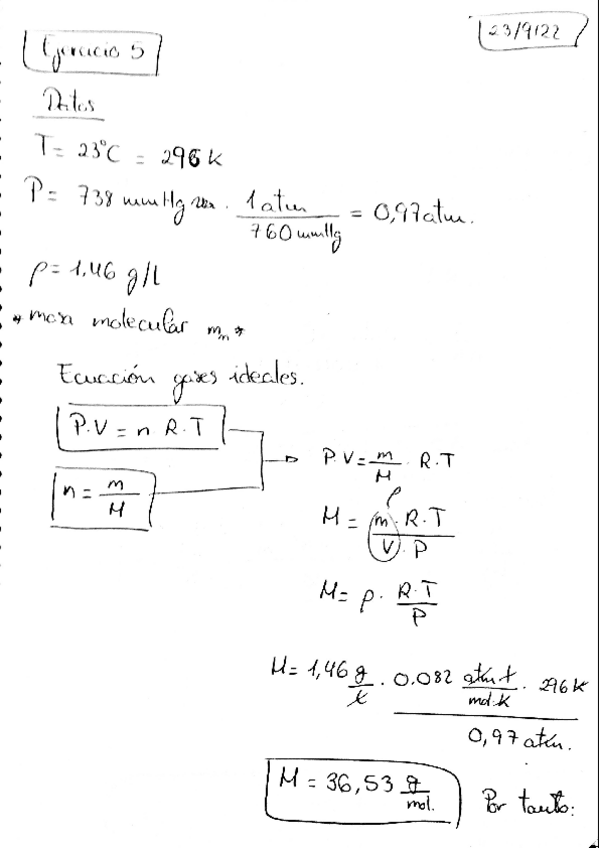 23/9/22
Ejercicio 5
Datos
T = 23°C = 296 K
P = 738 mmHg · 1 atm / 760 mmHg = 0,97 atm.
ρ = 1,46 g/l
* masa molecular mₘ *
Ecuación gases ideales.
P.V = n R.T
n = m / M
P.V = m / M · R.T
ρ
M = m · R.T / V · P
M = ρ · R.T / P
M = 1,46 g / l · 0.082 atm·l / mol·K · 296 K / 0,97 atm.
M = 36,53 g / mol.
Por tanto: